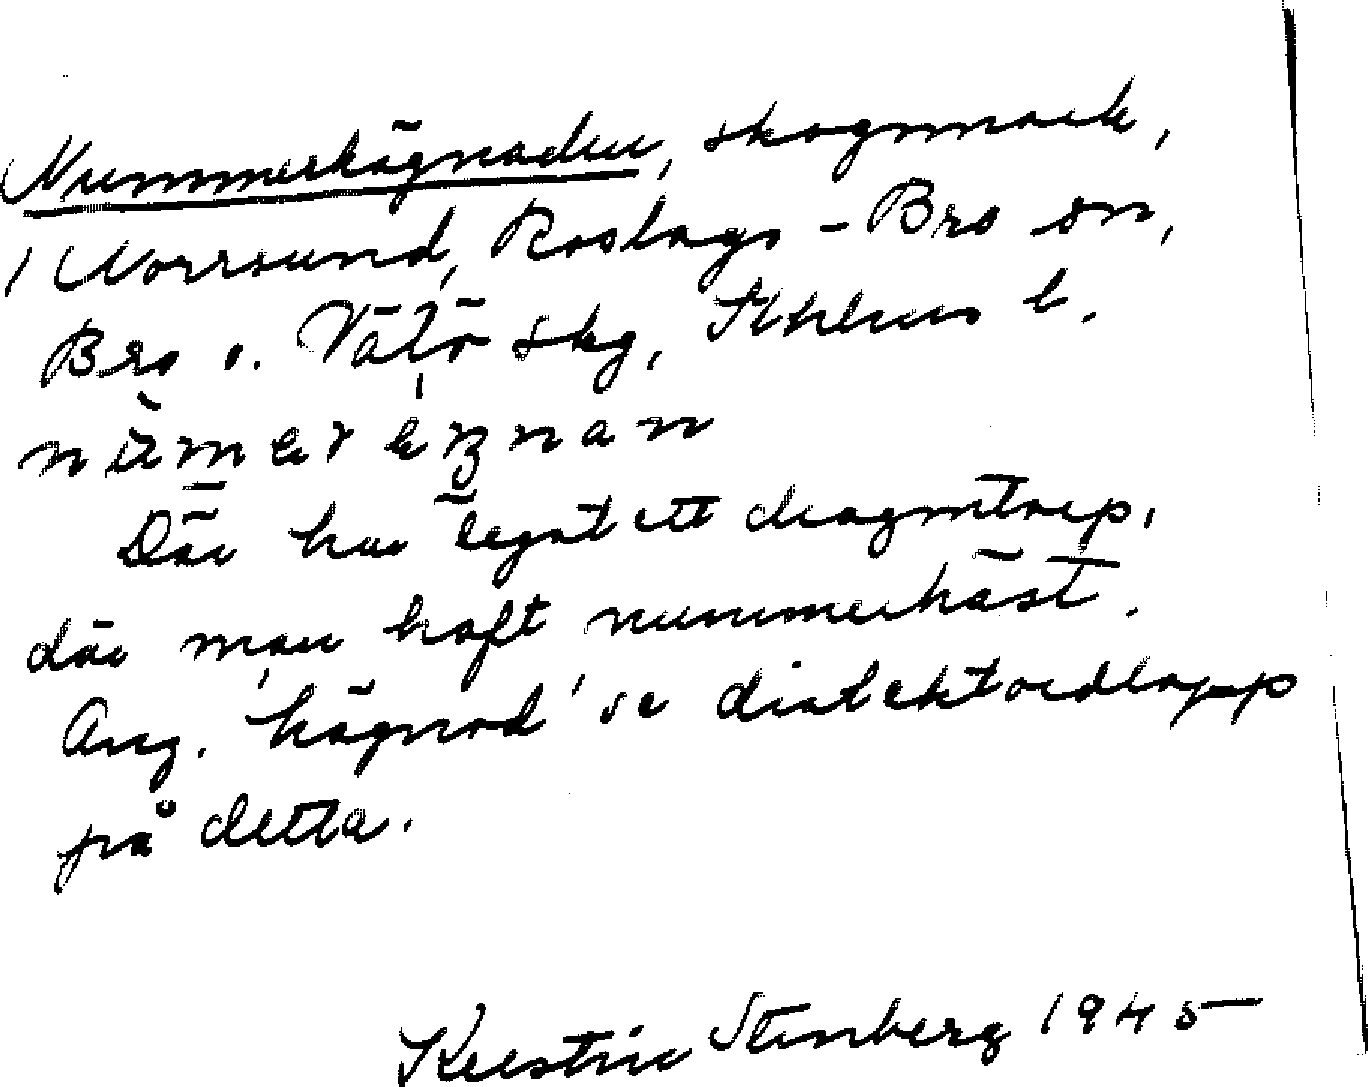 Nummerhägnaden, skogsmark,
Norrsund, Roslags-Bro sn,
Bro o. Vätö skg, Sthlms l.
Där har legat ett dragontorp,
där man haft nummerhäst.
Ang. 'hägnad' se dialektordlapp
på detta.
Kerstin Stenberg 1945